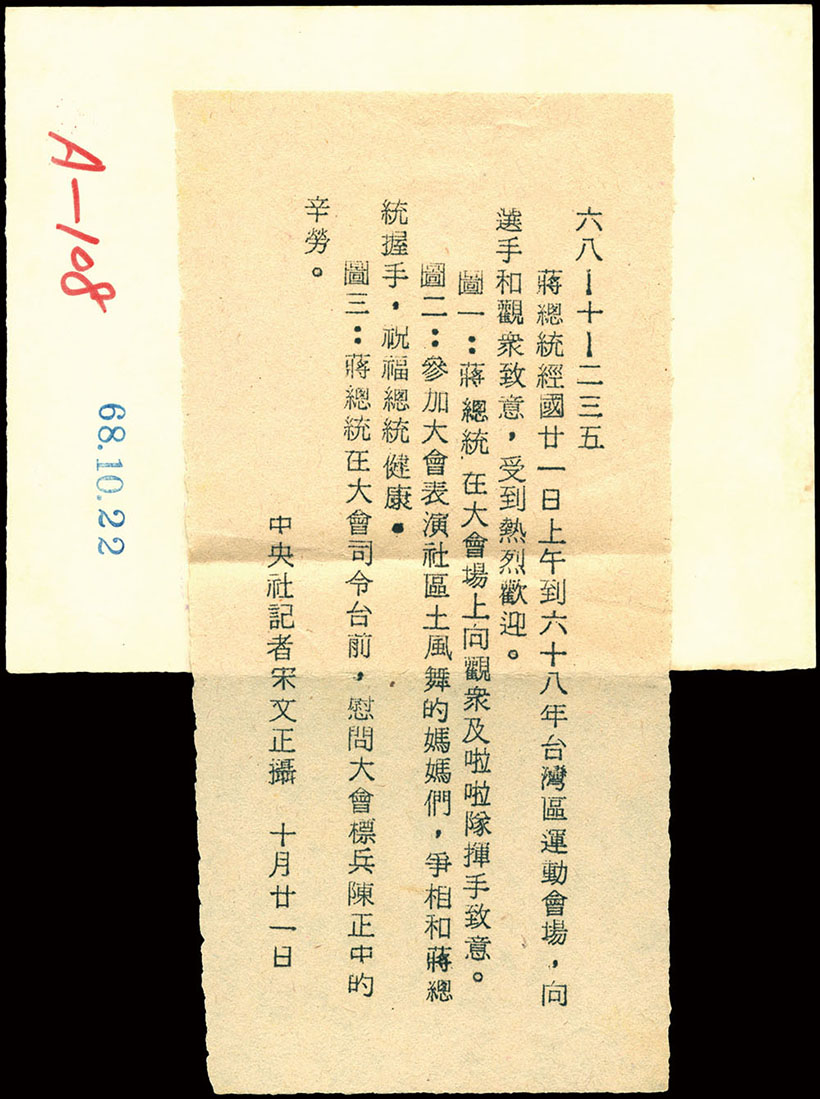 六八－十－二三五
蔣總統經國廿一日上午到六十八年台灣區運動會場，向
選手和觀衆致意，受到熱烈歡迎。
圖一：蔣總統在大會場上向觀衆及啦啦隊揮手致意。
圖二：參加大會表演社區土風舞的媽媽們，爭相和蔣總
統握手，祝福總統健康。
圖三：蔣總統在大會司令台前，慰問大會標兵陳正中的
辛勞。
中央社記者宋文正攝　十月廿一日
A-108
68.10.22